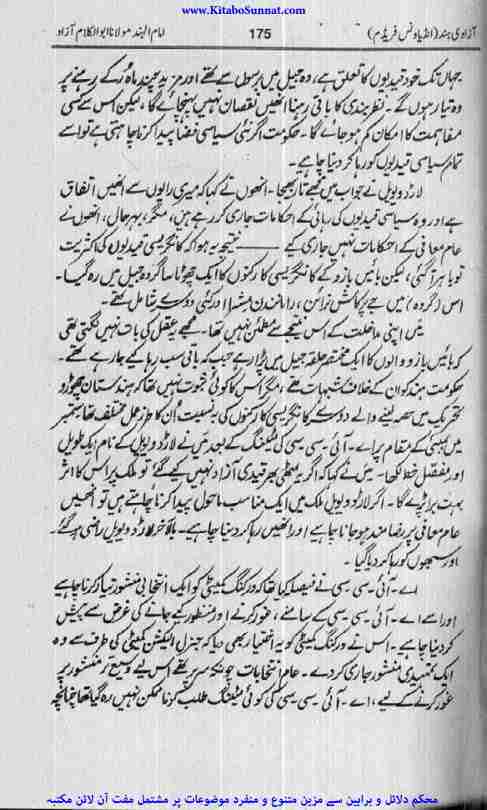 www.KitaboSunnat.com
آزادی ہند (انڈیا ونس فریڈم)
175
امام الہند مولانا ابوالکلام آزاد
جہاں تک خود قیدیوں کا تعلق ہے، وہ جیل میں برسوں سے تھے اور مزید چند ماہ رُکے رہنے پر
وہ تیار ہوں گے۔ نظر بندی کا باقی رہنا انھیں نقصان نہیں پہنچائے گا، لیکن اس سے کسی
مفاہمت کا امکان کم ہو جائے گا۔ حکومت اگر نئی سیاسی فضا پیدا کرنا چاہتی ہے تو اسے
تمام سیاسی قیدیوں کو رہا کر دینا چاہیے۔
لارڈ ویول نے جواب میں مجھے تار بھیجا۔ انھوں نے کہا کہ میری رایوں سے انھیں اتفاق
ہے اور وہ سیاسی قیدیوں کی رہائی کے احکامات جاری کر رہے ہیں، مگر، بہر حال، انھوں نے
عام معافی کے احکامات نہیں جاری کیے ——— نتیجہ یہ ہوا کہ کانگریسی قیدیوں کی اکثریت
تو باہر آ گئی، لیکن بائیں بازو کے کانگریسی کارکنوں کا ایک چھوٹا سا گروہ جیل میں رہ گیا۔
اس (گروہ) میں جے پرکاش نرائن، راما نندن مشرا اور کئی دوسرے شامل تھے۔
میں اپنی مداخلت کے اس نتیجے سے مطمئن نہیں تھا۔ مجھے یہ عقل کی بات نہیں لگتی تھی
کہ بائیں بازو والوں کا ایک مختصر حلقہ جیل میں پڑا رہے جب کہ باقی سب رہا کیے جا رہے تھے۔
حکومت ہند کو ان کے خلاف شبہات تھے، مگر اس کا کوئی ثبوت نہیں تھا کہ ہندستان چھوڑو
تحریک میں حصہ لینے والے دوسرے کانگریسی کارکنوں کی بہ نسبت اُن کا طرز عمل مختلف تھا ستمبر
میں بمبئی کے مقام پر اے۔ آئی۔ سی۔ سی کی میٹنگ کے بعد میں نے لارڈ ویول کے نام ایک طویل
اور مفصل خط لکھا۔ میں نے کہا کہ اگر یہ مٹھی بھر قیدی آزاد نہیں کیے گئے تو ملک پر اس کا اثر
بہت برا پڑے گا۔ اگر لارڈ ویول ملک میں ایک مناسب ماحول پیدا کرنا چاہتے ہیں تو انھیں
عام معافی پر رضا مند ہو جانا چاہیے اور انھیں رہا کر دینا چاہیے۔ بالآخر لارڈ ویول راضی ہو گئے۔
اور سبھوں کو رہا کر دیا گیا۔
اے۔ آئی۔ سی۔ سی نے فیصلہ کیا تھا کہ ورکنگ کمیٹی کو ایک انتخابی منشور تیار کرنا چاہیے
اور اسے اے۔ آئی۔ سی۔ سی کے سامنے، غور کرنے اور منظور کیے جانے کی غرض سے پیش
کر دینا چاہیے۔ اس نے ورکنگ کمیٹی کو یہ اختیار بھی دیا کہ جنرل الیکشن کمیٹی کی طرف سے وہ
ایک تمہیدی منشور جاری کر دے۔ عام انتخابات چونکہ سر پر تھے اس لیے وسیع تر منشور پر
غور کرنے کے لیے، اے۔ آئی۔ سی۔ سی کی کوئی میٹنگ طلب کرنا ممکن نہیں رہ گیا تھا چنانچہ
محکم دلائل و براہین سے مزین متنوع و منفرد موضوعات پر مشتمل مفت آن لائن مکتبہ